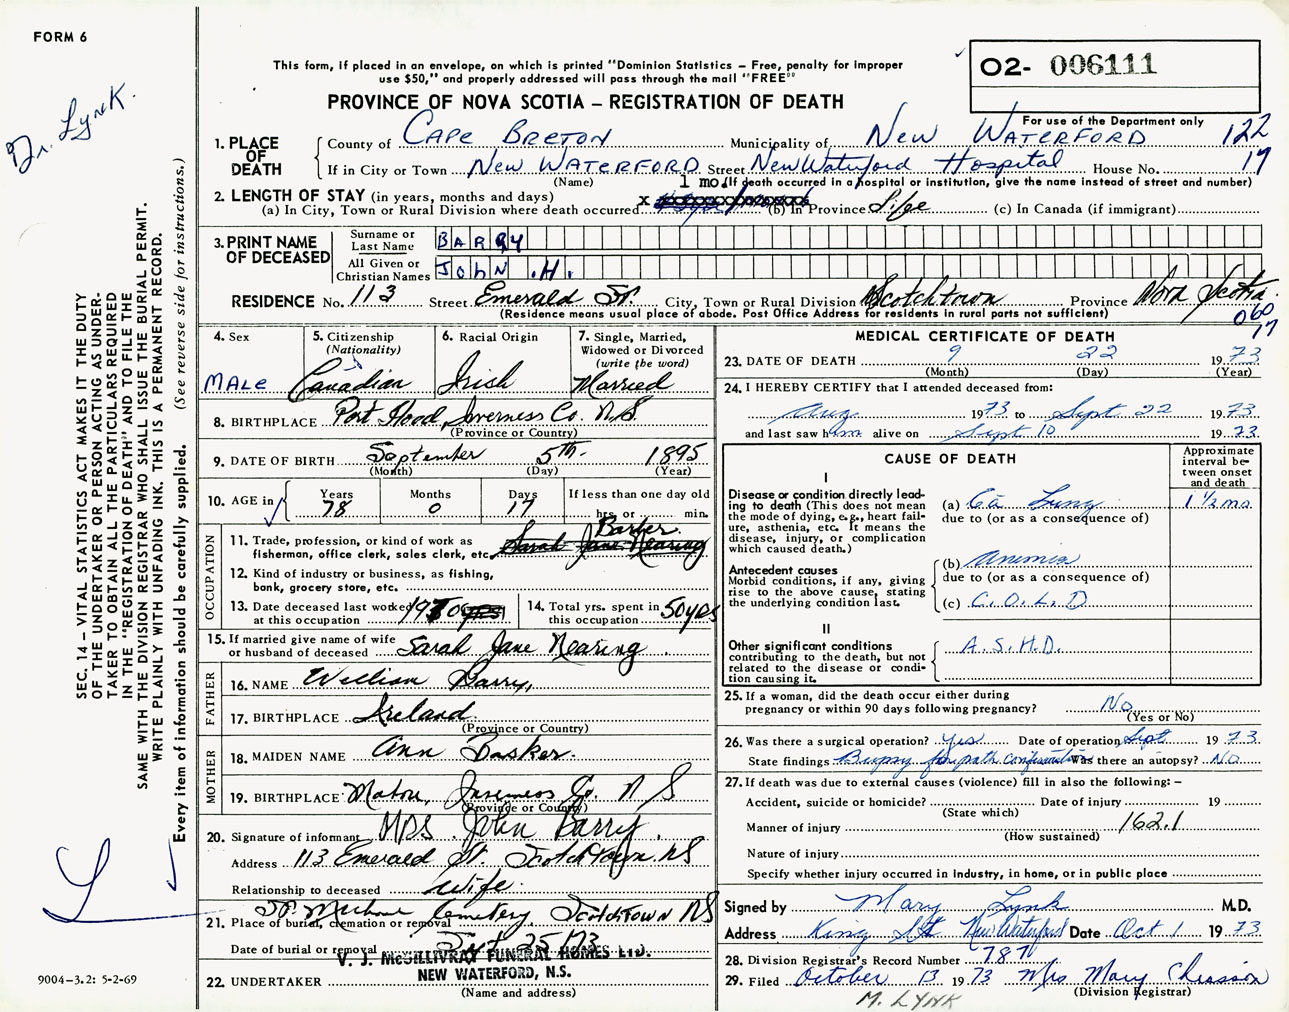 FORM 6
Dr. Lynk.
This form, if placed in an envelope, on which is printed "Dominion Statistics – Free, penalty for improper
use $50," and properly addressed will pass through the mail "FREE"
PROVINCE OF NOVA SCOTIA – REGISTRATION OF DEATH
O2- 006111
For use of the Department only
1. PLACE OF DEATH
County of Cape Breton Municipality of New Waterford 122
If in City or Town New Waterford Street New Waterford Hospital House No. 17
(Name) 1 mo. (If death occurred in a hospital or institution, give the name instead of street and number)
2. LENGTH OF STAY (in years, months and days)
(a) In City, Town or Rural Division where death occurred (b) In Province Life (c) In Canada (if immigrant)
3. PRINT NAME OF DECEASED
Surname or Last Name BARRY
All Given or Christian Names JOHN .H.
RESIDENCE No. 113 Street Emerald St. City, Town or Rural Division Scotchtown Province Nova Scotia
(Residence means usual place of abode. Post Office Address for residents in rural parts not sufficient)
060
17
4. Sex MALE
5. Citizenship (Nationality) Canadian
6. Racial Origin Irish
7. Single, Married, Widowed or Divorced (write the word) Married
8. BIRTHPLACE Port Hood, Inverness Co. N.S.
(Province or Country)
9. DATE OF BIRTH September 5th 1895
(Month) (Day) (Year)
10. AGE in Years 78 Months 0 Days 17 If less than one day old hrs. or min.
OCCUPATION
11. Trade, profession, or kind of work as Barber
fisherman, office clerk, sales clerk, etc. Sarah Jane Nearing
12. Kind of industry or business, as fishing,
bank, grocery store, etc.
13. Date deceased last worked at this occupation 1970 yrs
14. Total yrs. spent in this occupation 50 yrs
15. If married give name of wife or husband of deceased Sarah Jane Nearing.
FATHER
16. NAME William Barry,
17. BIRTHPLACE Ireland
(Province or Country)
MOTHER
18. MAIDEN NAME Ann Basker.
19. BIRTHPLACE Mabou, Inverness Co. N S
(Province or Country)
20. Signature of informant MRS. John Barry.
Address 113 Emerald St. Scotchtown. NS
Relationship to deceased Wife.
21. Place of burial, cremation or removal Cemetery, Scotchtown NS
Date of burial or removal Sept 25/73
V. J. McGILLIVRAY FUNERAL HOMES LTD.
NEW WATERFORD, N.S.
22. UNDERTAKER
(Name and address)
MEDICAL CERTIFICATE OF DEATH
23. DATE OF DEATH 9 22 1973
(Month) (Day) (Year)
24. I HEREBY CERTIFY that I attended deceased from:
Aug 1973 to Sept 22 1973
and last saw him alive on Sept 10 1973
CAUSE OF DEATH
Approximate interval between onset and death
I
Disease or condition directly leading to death (This does not mean the mode of dying, e.g., heart failure, asthenia, etc. It means the disease, injury, or complication which caused death.)
(a) Ca Lung 1 ½ mo
due to (or as a consequence of)
Antecedent causes
Morbid conditions, if any, giving rise to the above cause, stating the underlying condition last.
(b) Anemia
due to (or as a consequence of)
(c) C.O.L.D
II
Other significant conditions
contributing to the death, but not related to the disease or condition causing it.
A.S.H.D.
25. If a woman, did the death occur either during
pregnancy or within 90 days following pregnancy? No
(Yes or No)
26. Was there a surgical operation? Yes Date of operation Sept 1973
State findings Biopsy for path confirmation Was there an autopsy? No
27. If death was due to external causes (violence) fill in also the following: –
Accident, suicide or homicide? Date of injury 19
(State which)
Manner of injury 162.1
(How sustained)
Nature of injury
Specify whether injury occurred in industry, in home, or in public place
Signed by Mary Lynk M.D.
Address King St New Waterford Date Oct 1 1973
28. Division Registrar's Record Number 787
29. Filed October 13 1973 Mrs Mary Chiasson
(Division Registrar)
M. LYNK
SEC. 14 – VITAL STATISTICS ACT MAKES IT THE DUTY
OF THE UNDERTAKER OR PERSON ACTING AS UNDER-
TAKER TO OBTAIN ALL THE PARTICULARS REQUIRED
IN THE "REGISTRATION OF DEATH" AND TO FILE THE
SAME WITH THE DIVISION REGISTRAR WHO SHALL ISSUE THE BURIAL PERMIT.
WRITE PLAINLY WITH UNFADING INK. THIS IS A PERMANENT RECORD.
Every item of information should be carefully supplied. (See reverse side for instructions.)
9004–3.2: 5-2-69